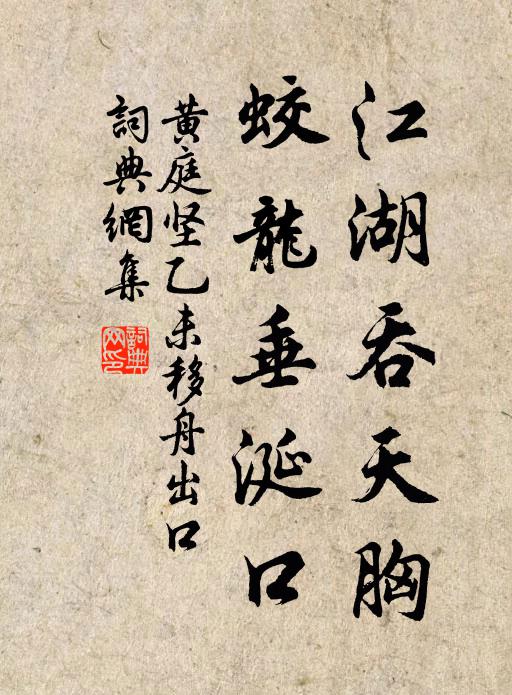 江湖吞天胸
蛟龍垂涎口
黄庭坚乙未移舟出口
詞典網集
詞典
网印